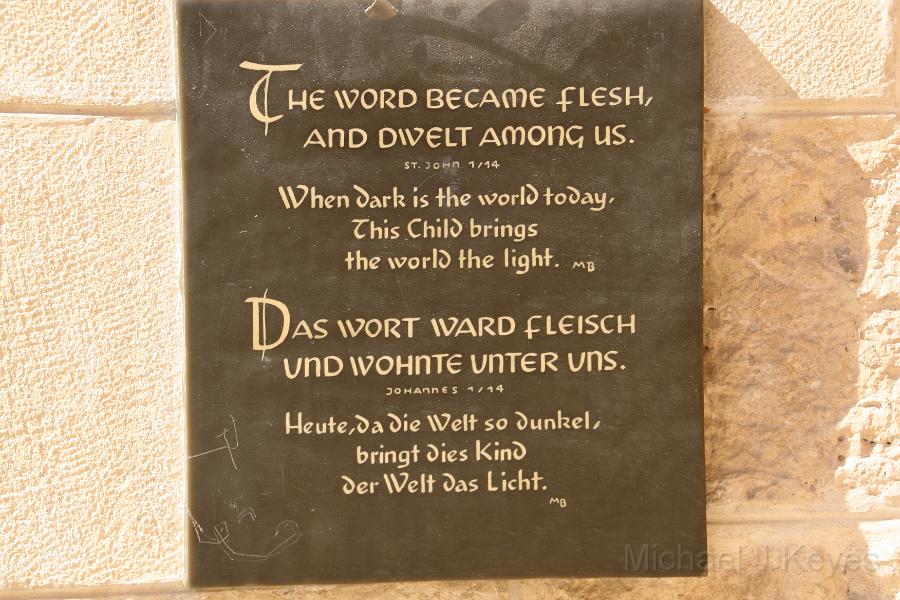 THE WORD BECAME FLESH,
AND DWELT AMONG US.
ST. JOHN 1/14
When dark is the world today,
This Child brings
the world the light. MB
DAS WORT WARD FLEISCH
UND WOHNTE UNTER UNS.
JOHANNES 1/14
Heute, da die Welt so dunkel,
bringt dies Kind
der Welt das Licht.
MB
Michael J Keyes